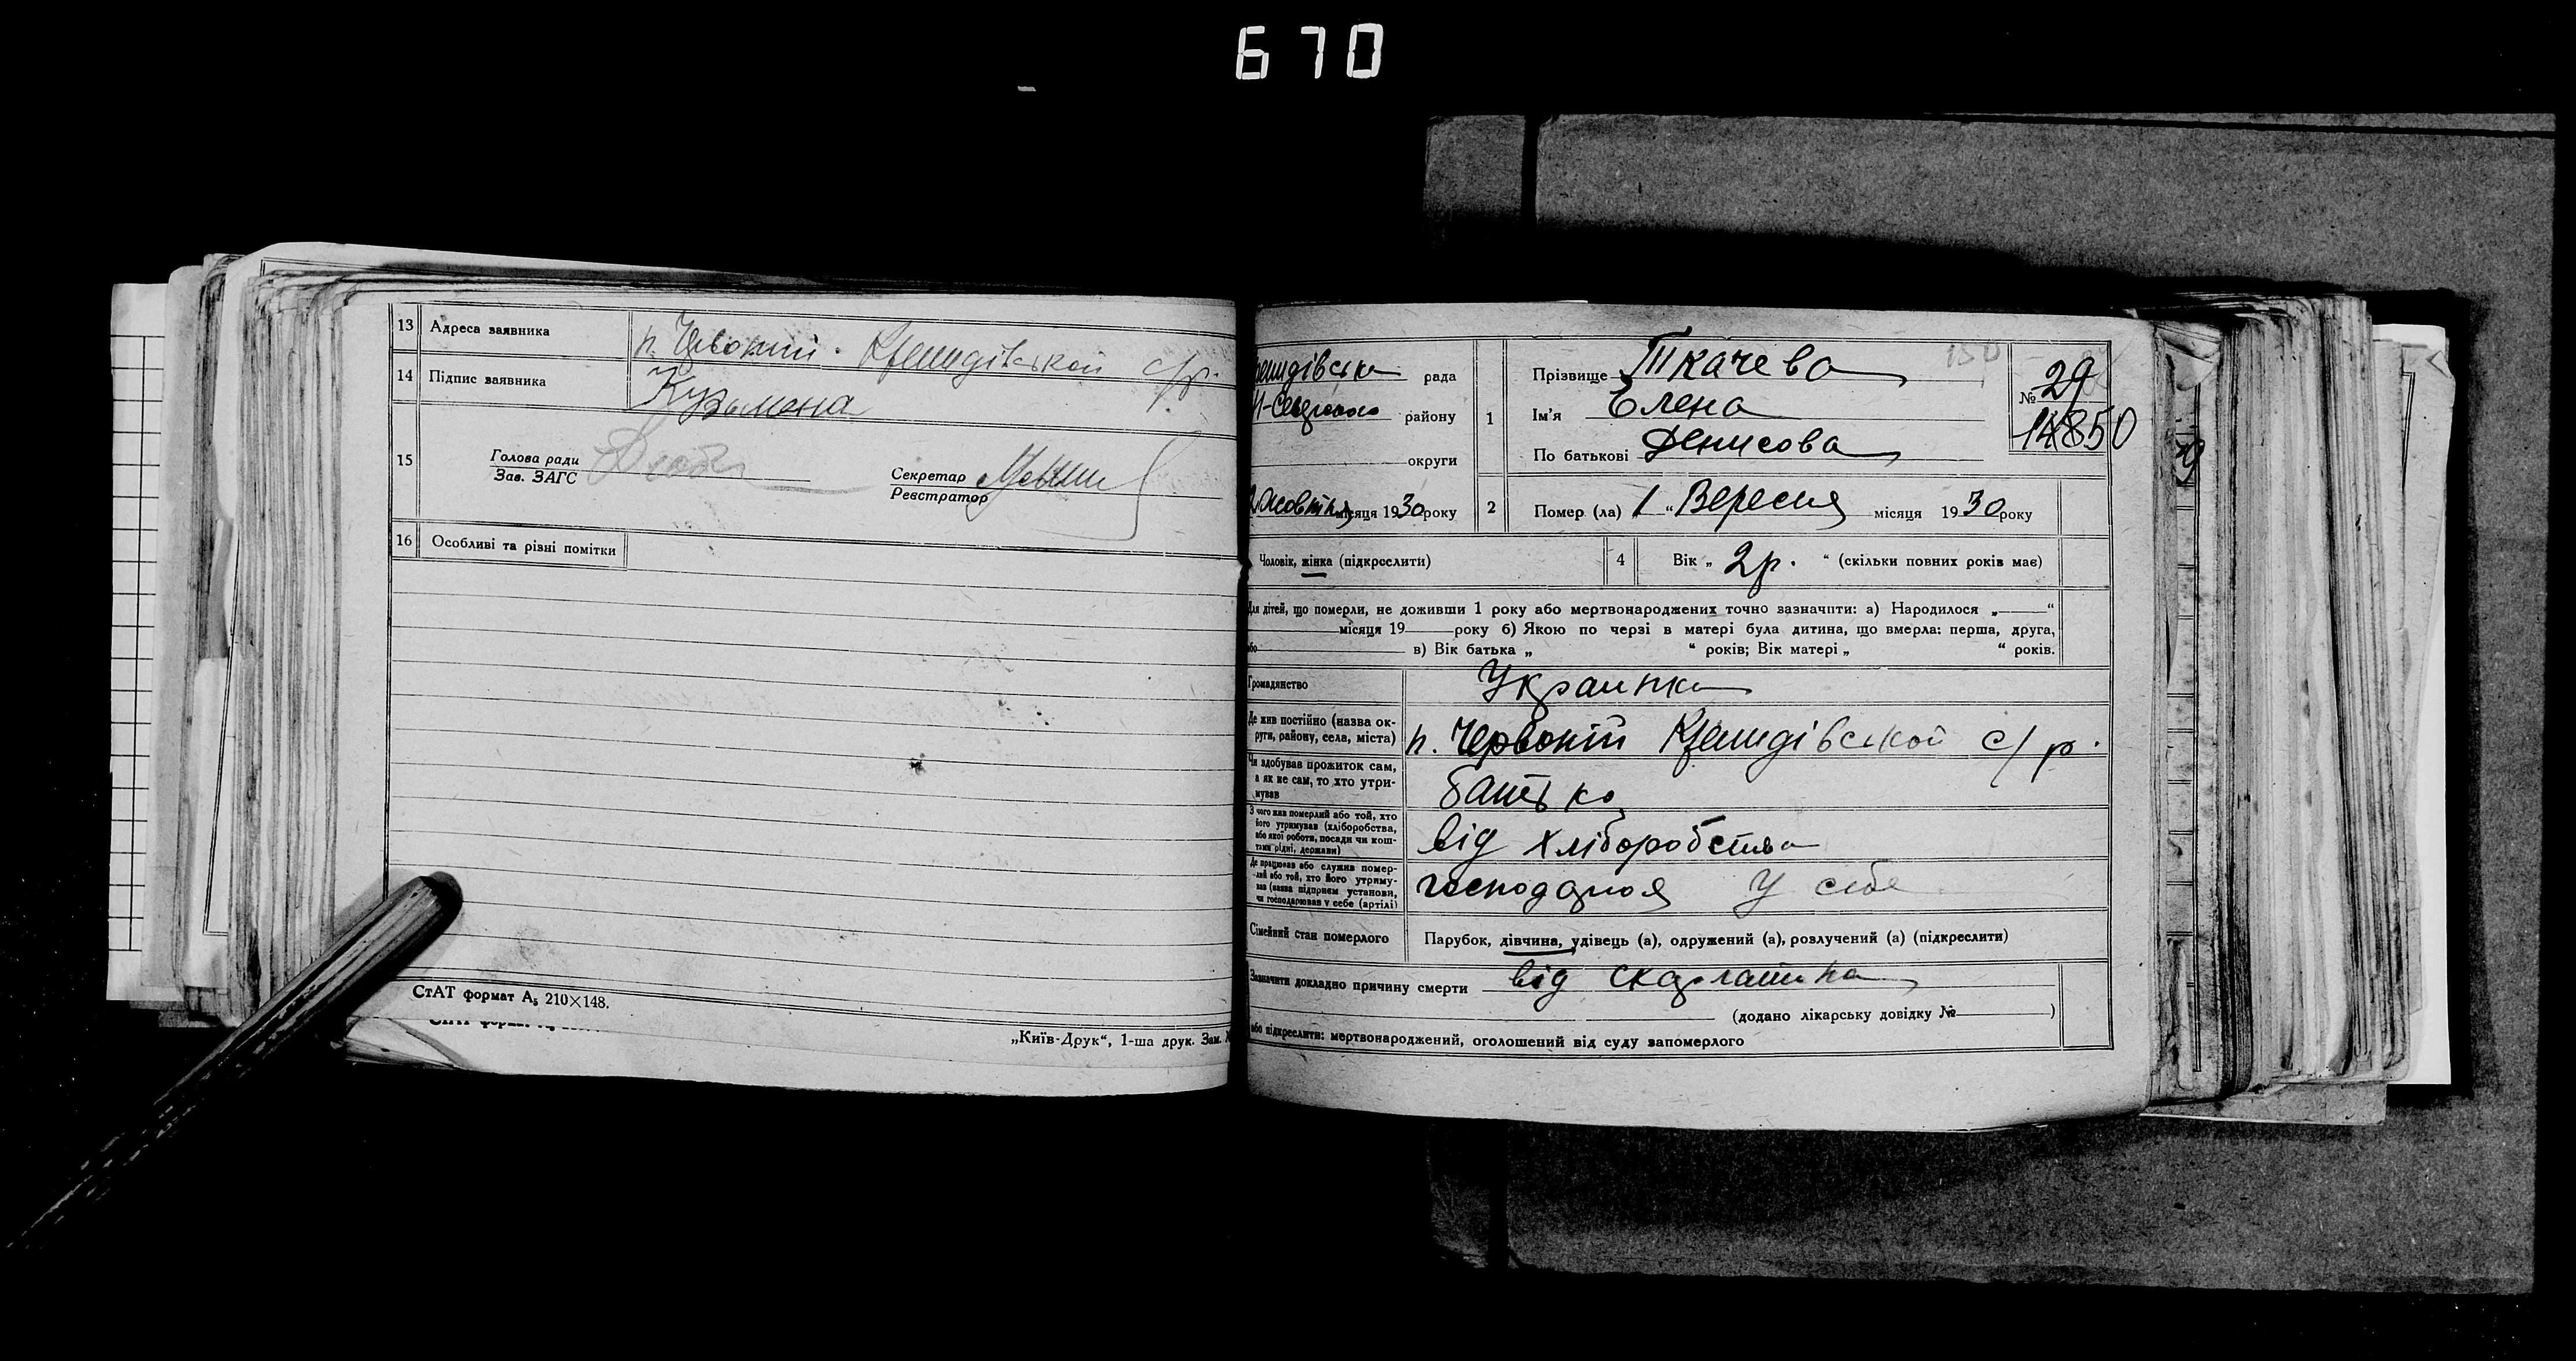 670
13 Адреса заявника п. Червоний. Кремидівської с/р.
14 Підпис заявника Кузьмена
15 Голова ради
Зав. ЗАГС
Секретар
Реєстратор
16 Особливі та різні помітки
СтАТ формат А₅ 210×148.
„Київ-Друк“, 1-ша друк. Зам. №
рада
району
округи
2 Жовтня місяця 1930 року
1 Прізвище Ткачева
Ім'я Елена
По батькові Денисова
150
№ 29
14850
2 Помер (ла) „ 1 “ Вересня місяця 1930 року
Чоловік, жінка (підкреслити)
4 Вік „ 2 р. “ (скільки повних років має)
Для дітей, що померли, не доживши 1 року або мертвонароджених точно зазначити: а) Народилося „ “
місяця 19 року б) Якою по черзі в матері була дитина, що вмерла: перша, друга,
або в) Вік батька „ “ років; Вік матері „ “ років.
Громадянство Украинка
Де жив постійно (назва ок-
руги, району, села, міста) п. Червоний Кремидівської с/р.
Чи здобував прожиток сам,
а як не сам, то хто утри-
мував батько
З чого жив померлий або той, хто
його утримував (хліборобства,
або якої роботи, посади чи кош-
тами рідні, держави) від хліборобства
Де працював або служив помер-
лий або той, хто його утриму-
вав (назва підприєм установи,
чи господарював у себе (артілі) у себе
Сімейний стан померлого Парубок, дівчина, удівець (а), одружений (а), розлучений (а) (підкреслити)
Зазначити докладно причину смерти від скарлатина
(додано лікарську довідку № )
або підкреслити: мертвонароджений, оголошений від суду запомерлого